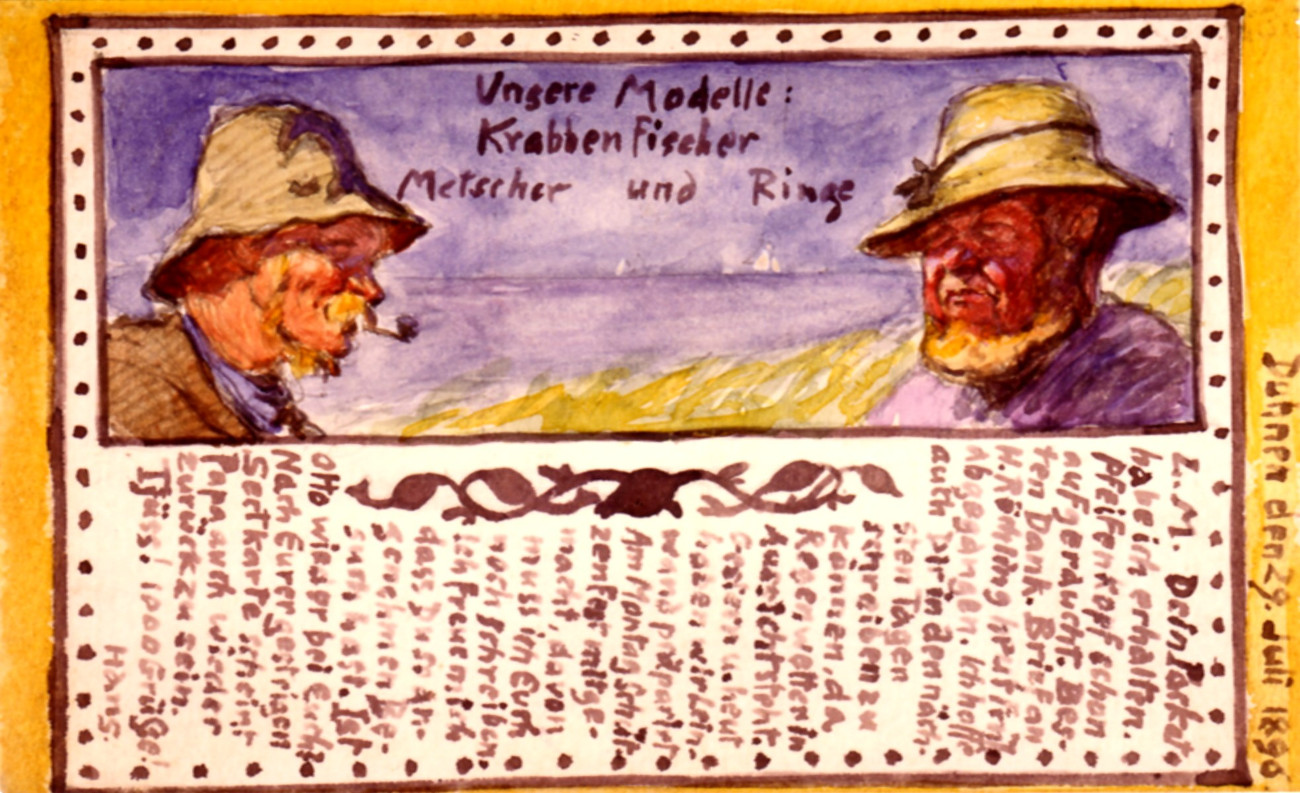 Unsere Modelle:
Krabbenfischer
Metscher und Ringe
Duhnen den 29. Juli 1896
L. M. Dein Paket
habe ich erhalten.
Pfeifenkopf schon
aufgeraucht. Bes-
ten Dank. Brief an
H. Röhling
abgegangen. Ich hoffe
auch dir in den näch-
sten Tagen
schreiben zu
können, da
Regenwetter in
Aussicht steht.
Gestern u. heut
haben wir Lein-
wand präpariert.
Am Montag Schüt-
zenfest mitge-
macht, davon
muss ich Euch
noch schreiben.
Ich freue mich
dass Du so An-
genehmen Be-
such hast. Ist
Otto wieder bei Euch?
Nach Eurer gestrigen
scheint
Papa auch wieder
zurück zu sein.
Tjüss! 1000 Grüße!
Hans.